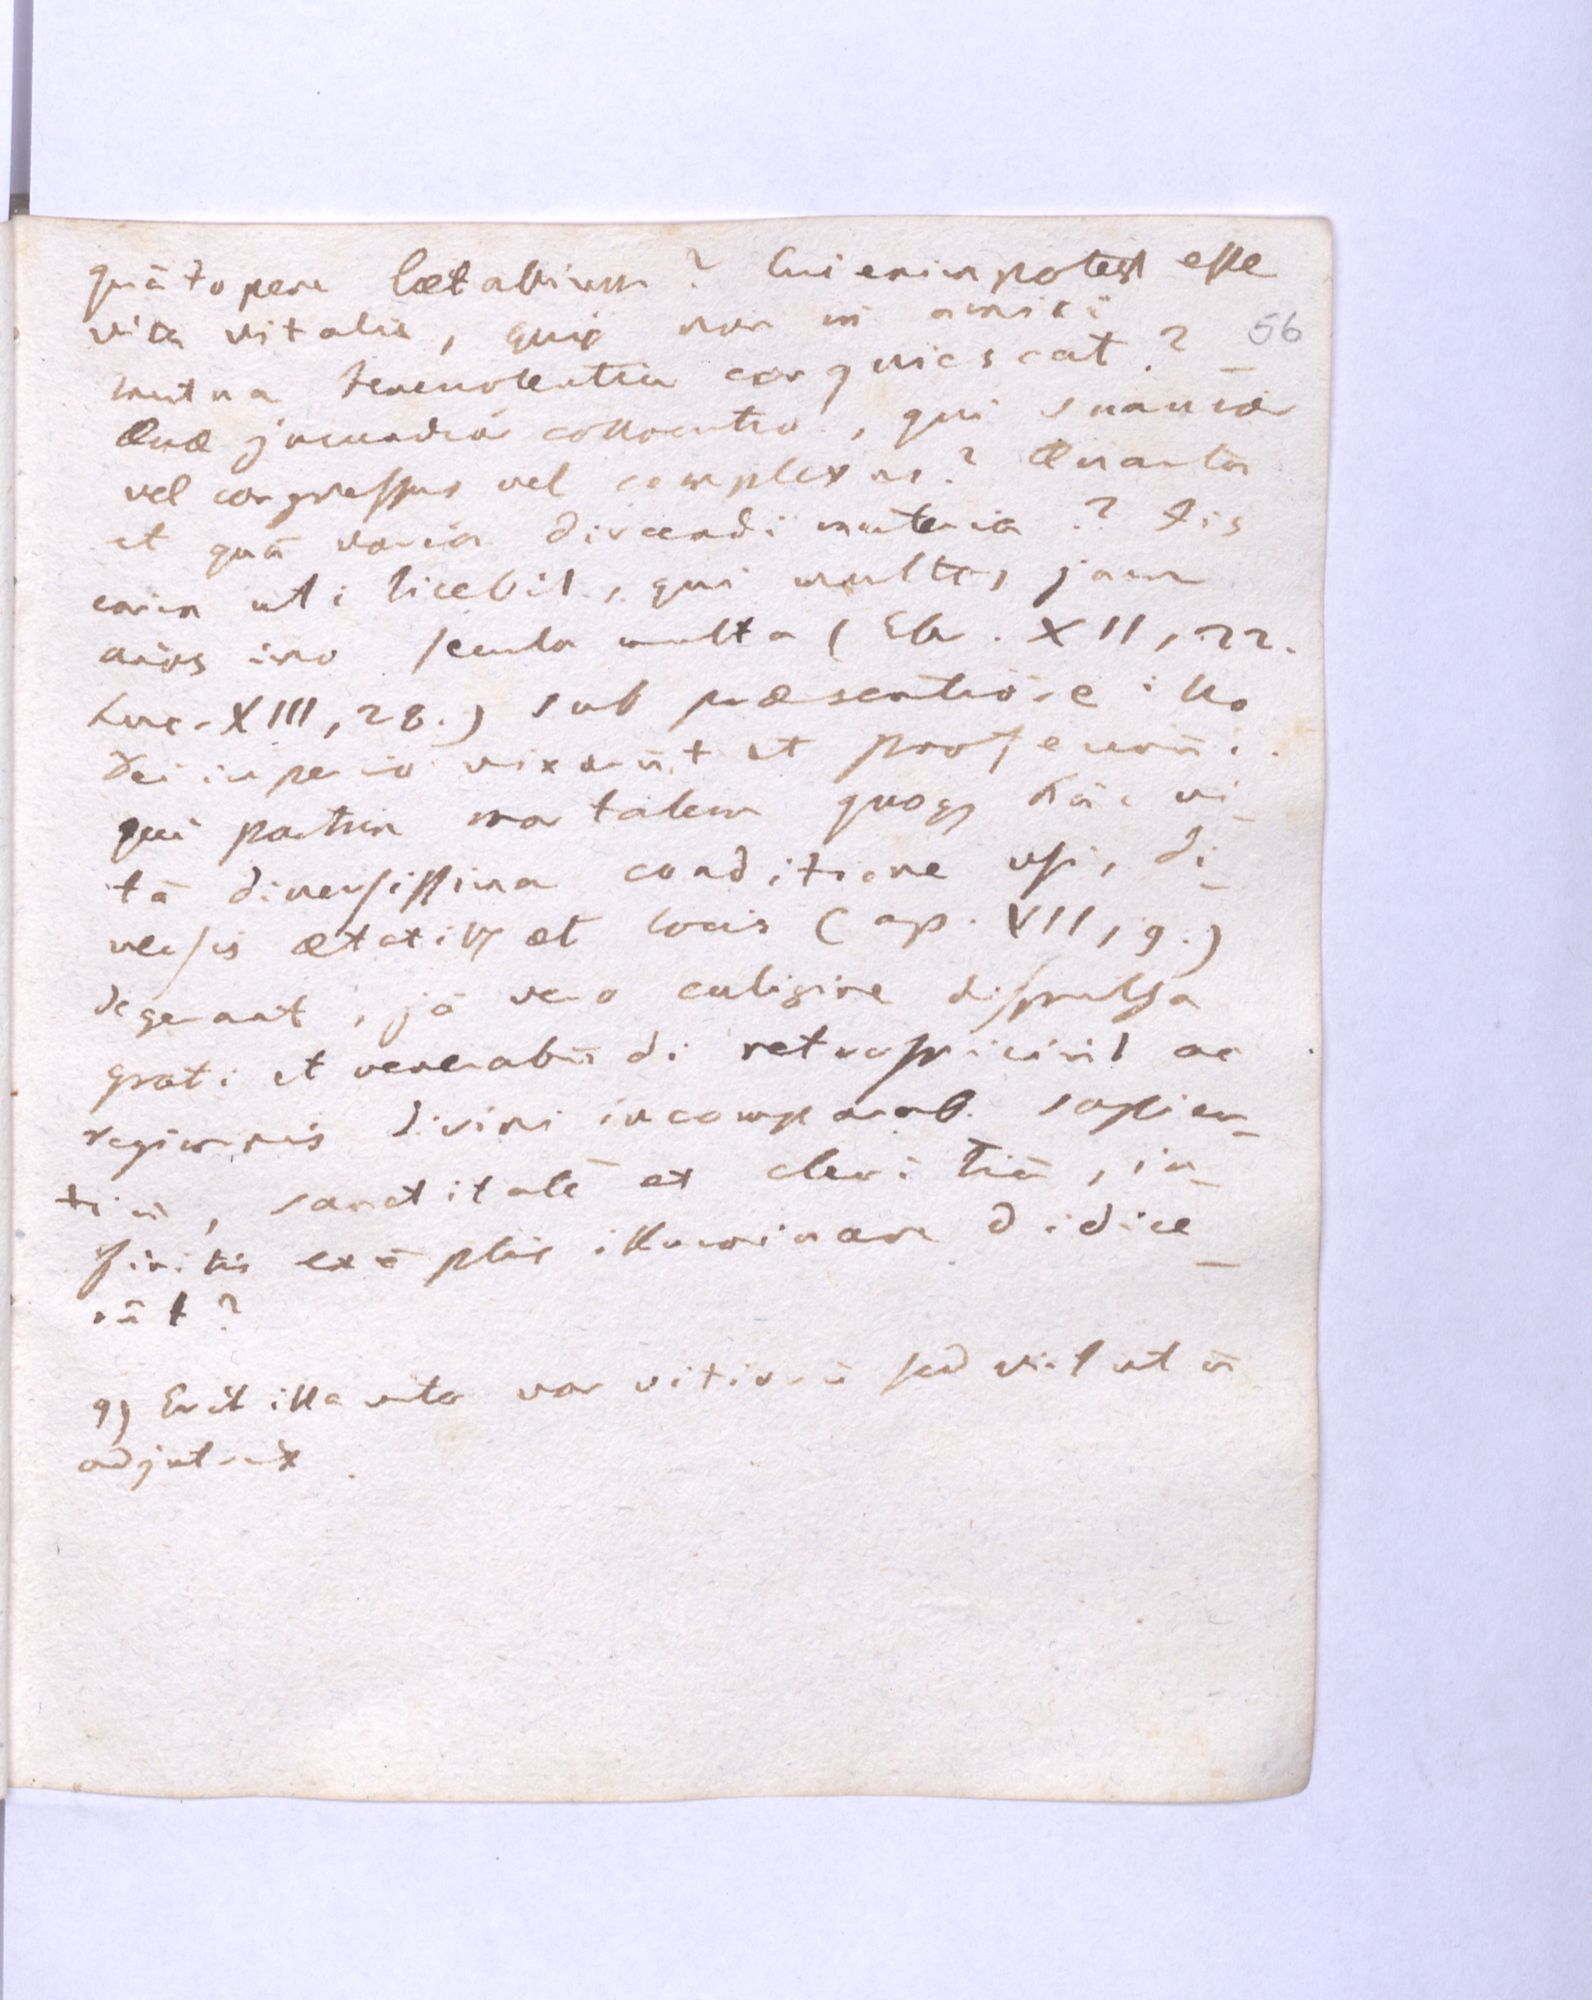 quātopere lætabimur? Cui enim potest esse
vita vitalis, quæ non in amici
56
mutua benevolentia conquiescat?
Quæ jucundior collocutio, qui suavior
vel congressus vel complexus? Quanta
et quā varia dicendi materia? Iis
enim uti licebit, qui multos jam
años imo secula multa (Ebr. XII, 22.
Luc. XIII, 28.) sub præsentiore illo
Dei imperio vixerūt et profecerūt.
qui partim mortalem quoqꝫ hāc vi-
tā diversissima conditione usi, di-
versis ætatibꝫ et locis (ap. VII, 9.)
degerant, jā vero caligine dispulsa
grati et venerabūdi retrospiciūt ac
regiminis divini incomparab. sapien-
tiā, sanctitatē et clemētiā, in-
finitis exēplis illuminare didice-
rūt?
9) Erit illa vita non vitiorū sed virtutū
adjutrix.